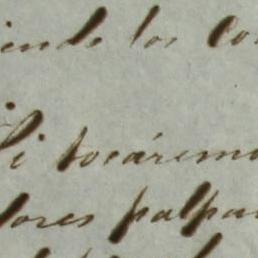 iendo los con
Si tocáremo
dores palpar